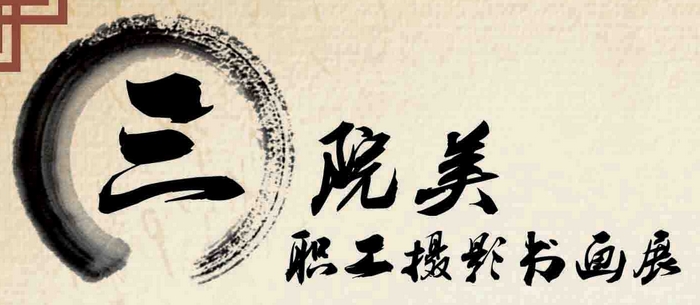 三院美
职工摄影书画展